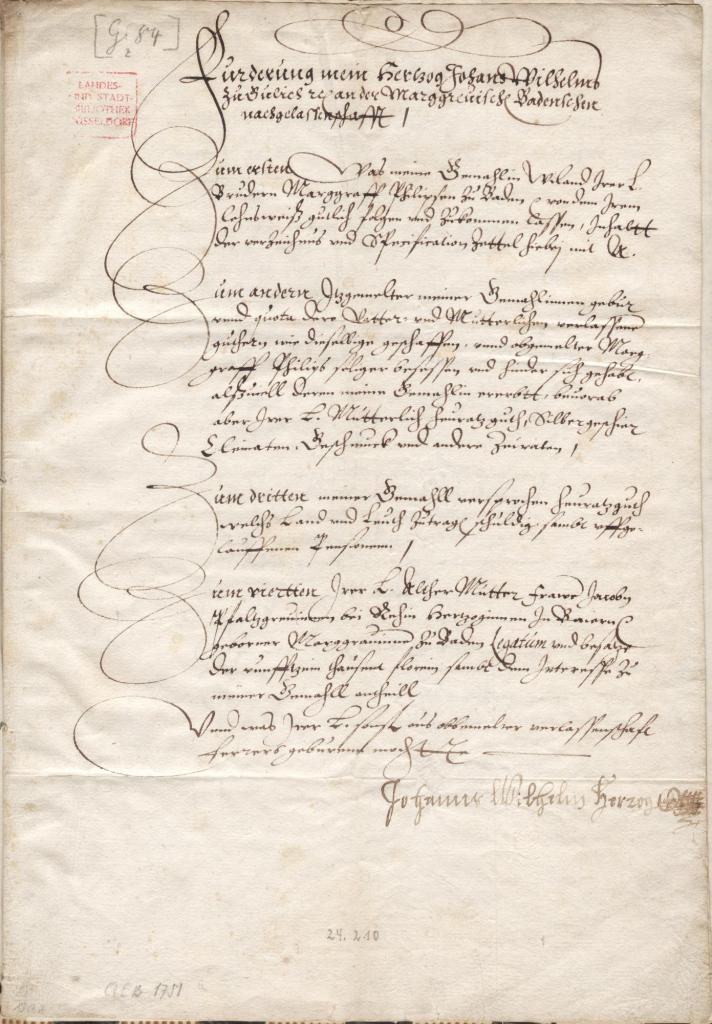 [G. 84]
2
LANDES-
UND STADT-
BIBLIOTHEK
DÜSSELDORF
Furderung mein Hertzog Johans Wilhelms
zu Gulich rc an der Marggreuisch Badenschen
nachgelassenschafft /
Zum ersten Was meine Gemahlin Wiland Irer L.
Brudern Marggraff Philipsen zu Baden von dem Irem
lehnsweiß gutlich folgen vnd zukommen lassen, Inhaltt
der verzeichnus vnd Specification Zettel hiebej mit A.
Zum andern Itzgemelter meiner Gemahlinnen gebur
vnnd quota dero Vatter- vnd Mutterlichen verlassene
guthern wie dieselbige geschaffen, vnnd obgemelter Marg-
graff Philips seliger besessen vnd hinder sich gehabt,
alßzuell deren meine Gemahlin ererbtt, beuorab
aber Irer L. Mutterlich heuratzguth, Silbergeschier
Cleinaten, Geschmuck vnd andere Zeiraten /
Zum dritten meiner Gemahll versprochen heuratzguth
welchs Land vnd Leuth zutrag schuldig sambt vffge-
lauffenen Pensionenn /
Zum viertten Irer L. Alther Mutter Frawe Jacoby
Pfaltzgreuinnen bei Rhein Hertzoginnen In Baiern
geborner Marggrauinne zu Baden Legatum vnd besatze
der vunffzein thausent florein sambt dem Interesse zu
meiner Gemahll antheill
Vnnd was Irer L. sonst aus obbemelter verlassenschafft
ferrers geburenn mocht rc
Johanns Wilhelm Herzog
24. 210
1781